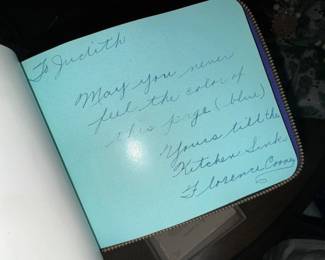 To Judith
May you never
feel the color of
this page (blue)
Yours till the
Kitchen Sink
Florence Cooney